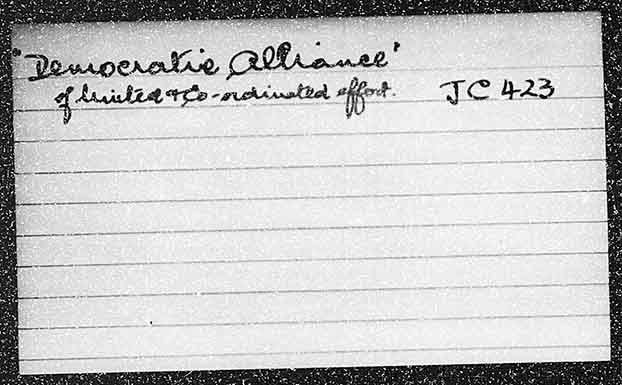 "Democratic Alliance"
of United & Co-ordinated effort. JC 423